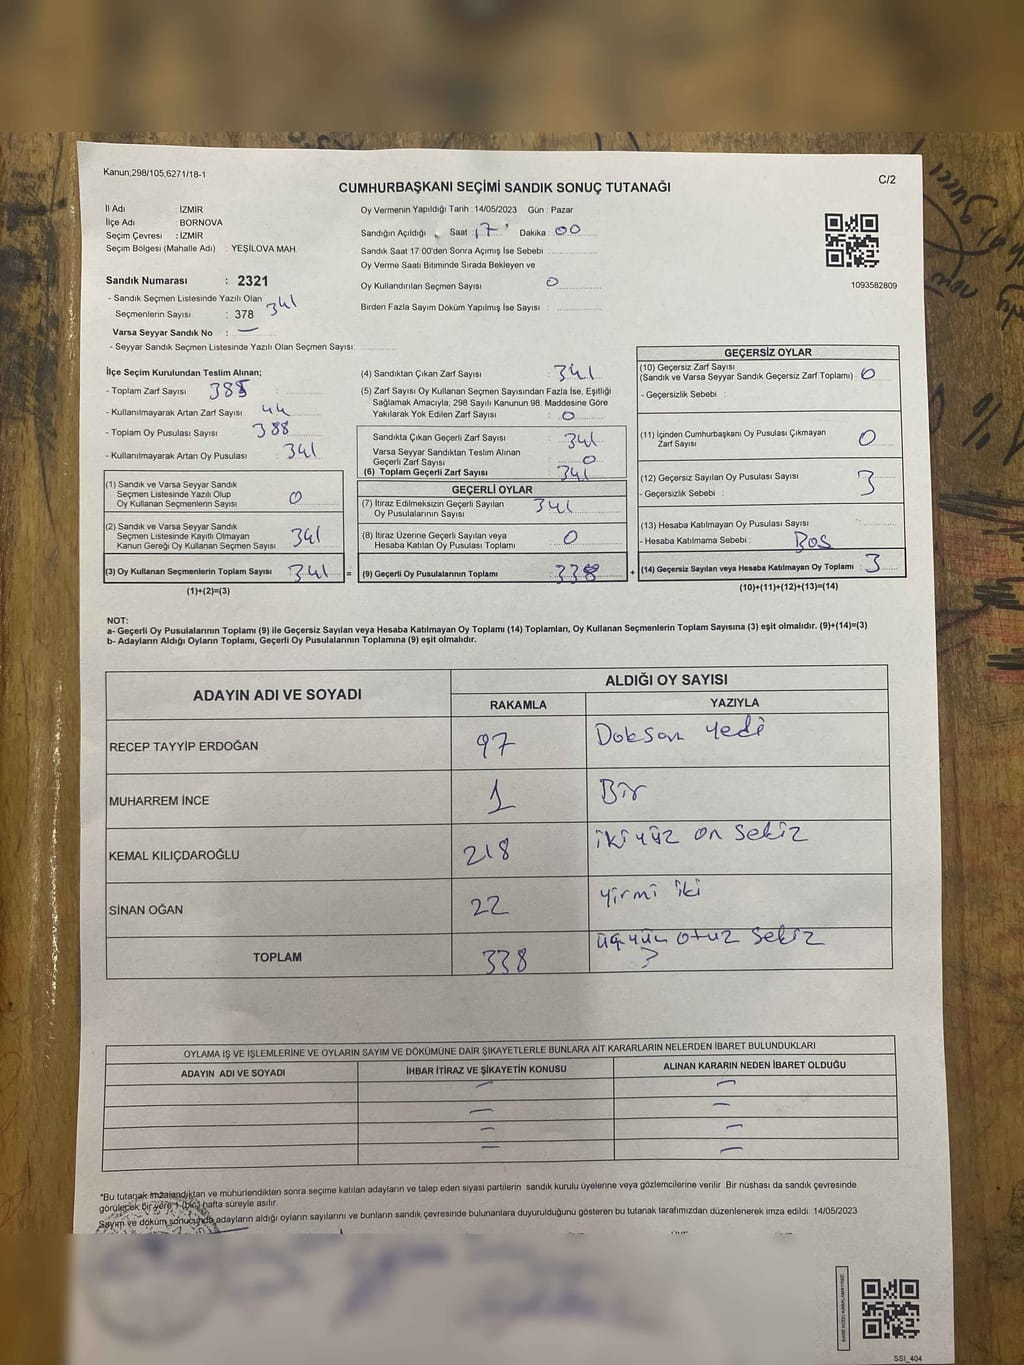 Kanun,298/105,6271/18-1
C/2
CUMHURBAŞKANI SEÇİMİ SANDIK SONUÇ TUTANAĞI
İl Adı : İZMİR
İlçe Adı : BORNOVA
Seçim Çevresi : İZMİR
Seçim Bölgesi (Mahalle Adı) : YEŞİLOVA MAH.
Sandık Numarası : 2321
- Sandık Seçmen Listesinde Yazılı Olan
Seçmenlerin Sayısı : 378 341
Varsa Seyyar Sandık No : —
- Seyyar Sandık Seçmen Listesinde Yazılı Olan Seçmen Sayısı
Oy Vermenin Yapıldığı Tarih : 14/05/2023 Gün : Pazar
Sandığın Açıldığı Saat 17 Dakika : 00
Sandık Saat 17:00'den Sonra Açımış İse Sebebi :
Oy Verme Saati Bitiminde Sırada Bekleyen ve
Oy Kullandırılan Seçmen Sayısı 0
Birden Fazla Sayım Döküm Yapılmış İse Sayısı :
1093582809
İlçe Seçim Kurulundan Teslim Alınan;
- Toplam Zarf Sayısı 385
- Kullanılmayarak Artan Zarf Sayısı 44
- Toplam Oy Pusulası Sayısı 388
- Kullanılmayarak Artan Oy Pusulası 341
(1) Sandık ve Varsa Seyyar Sandık
Seçmen Listesinde Yazılı Olup
Oy Kullanan Seçmenlerin Sayısı 0
(2) Sandık ve Varsa Seyyar Sandık
Seçmen Listesinde Kayıtlı Olmayan
Kanun Gereği Oy Kullanan Seçmen Sayısı 341
(3) Oy Kullanan Seçmenlerin Toplam Sayısı 341 =
(1)+(2)=(3)
(4) Sandıktan Çıkan Zarf Sayısı : 341
(5) Zarf Sayısı Oy Kullanan Seçmen Sayısından Fazla İse, Eşitliği
Sağlamak Amacıyla; 298 Sayılı Kanunun 98. Maddesine Göre
Yakılarak Yok Edilen Zarf Sayısı : 0
Sandıkta Çıkan Geçerli Zarf Sayısı : 341
Varsa Seyyar Sandıktan Teslim Alınan
Geçerli Zarf Sayısı : 0
(6) Toplam Geçerli Zarf Sayısı : 341
GEÇERLİ OYLAR
(7) İtiraz Edilmeksizin Geçerli Sayılan
Oy Pusulalarının Sayısı 341
(8) İtiraz Üzerine Geçerli Sayılan veya
Hesaba Katılan Oy Pusulası Toplamı : 0
(9) Geçerli Oy Pusulalarının Toplamı : 338 +
GEÇERSİZ OYLAR
(10) Geçersiz Zarf Sayısı
(Sandık ve Varsa Seyyar Sandık Geçersiz Zarf Toplamı) : 0
- Geçersizlik Sebebi :
(11) İçinden Cumhurbaşkanı Oy Pusulası Çıkmayan
Zarf Sayısı : 0
(12) Geçersiz Sayılan Oy Pusulası Sayısı : 3
- Geçersizlik Sebebi :
(13) Hesaba Katılmayan Oy Pusulası Sayısı :
- Hesaba Katılmama Sebebi : Boş
(14) Geçersiz Sayılan veya Hesaba Katılmayan Oy Toplamı : 3
(10)+(11)+(12)+(13)=(14)
NOT:
a- Geçerli Oy Pusulalarının Toplamı (9) ile Geçersiz Sayılan veya Hesaba Katılmayan Oy Toplamı (14) Toplamları, Oy Kullanan Seçmenlerin Toplam Sayısına (3) eşit olmalıdır. (9)+(14)=(3)
b- Adayların Aldığı Oyların Toplamı, Geçerli Oy Pusulalarının Toplamına (9) eşit olmalıdır.
ADAYIN ADI VE SOYADI
ALDIĞI OY SAYISI
RAKAMLA YAZIYLA
RECEP TAYYİP ERDOĞAN 97 Doksan yedi
MUHARREM İNCE 1 Bir
KEMAL KILIÇDAROĞLU 218 iki yüz on sekiz
SİNAN OĞAN 22 yirmi iki
TOPLAM 338 üçyüz otuz sekiz
OYLAMA İŞ VE İŞLEMLERİNE VE OYLARIN SAYIM VE DÖKÜMÜNE DAİR ŞİKAYETLERLE BUNLARA AİT KARARLARIN NELERDEN İBARET BULUNDUKLARI
ADAYIN ADI VE SOYADI İHBAR İTİRAZ VE ŞİKAYETİN KONUSU ALINAN KARARIN NEDEN İBARET OLDUĞU
*Bu tutanak imzalandıktan ve mühürlendikten sonra seçime katılan adayların ve talep eden siyasi partilerin sandık kurulu üyelerine veya gözlemcilerine verilir .Bir nüshası da sandık çevresinde
görülecek bir yere 1 (bir) hafta süreyle asılır.
Sayım ve döküm sonucunda adayların aldığı oyların sayılarını ve bunların sandık çevresinde bulunanlara duyurulduğunu gösteren bu tutanak tarafımızdan düzenlenerek imza edildi. 14/05/2023
SSI_404